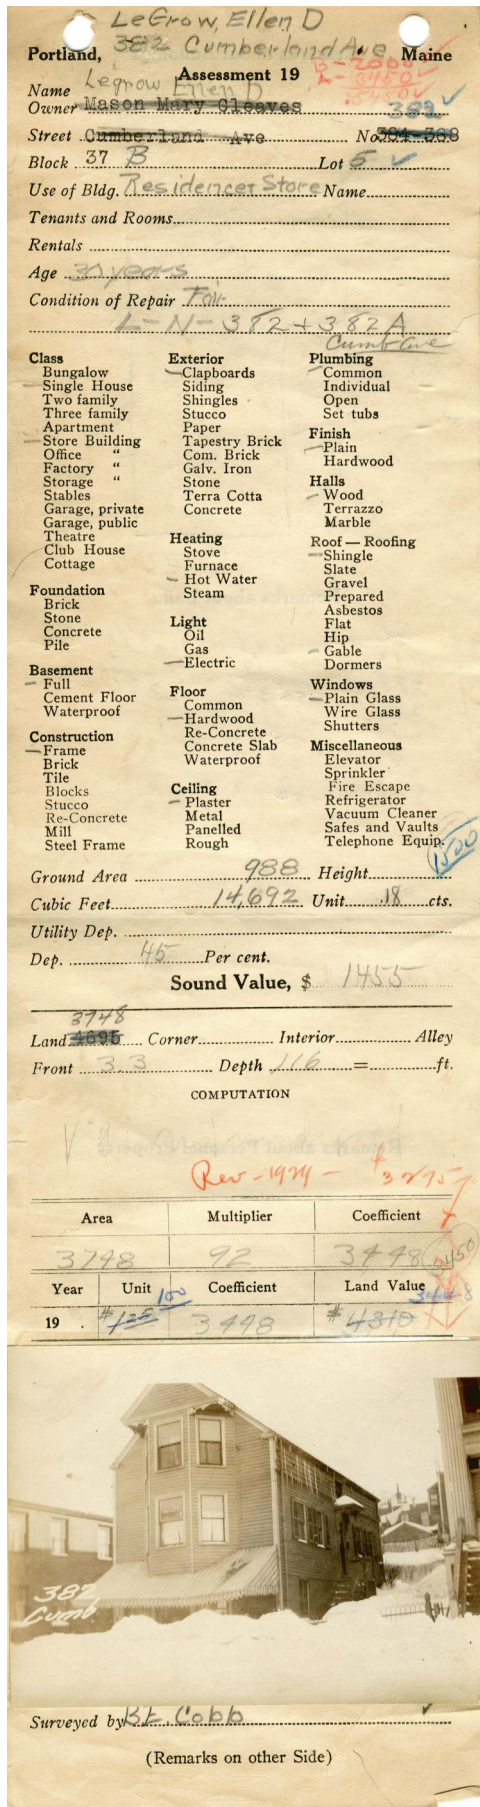 LeGrow, Ellen D
382 Cumberland Ave
Portland, Maine
Assessment 19
B-2000
L-3450
5450
Name Legrow Ellen D
Owner Mason Mary Cleaves 382
Street Cumberland Ave No. 384-368
Block 37 B Lot 5
Use of Bldg. Residence & Store Name
Tenants and Rooms
Rentals
Age 30 years
Condition of Repair Fair
L-N-382 + 382A
Cumb Ave
Class
Bungalow
Single House
Two family
Three family
Apartment
Store Building
Office "
Factory "
Storage "
Stables
Garage, private
Garage, public
Theatre
Club House
Cottage
Foundation
Brick
Stone
Concrete
Pile
Basement
Full
Cement Floor
Waterproof
Construction
Frame
Brick
Tile
Blocks
Stucco
Re-Concrete
Mill
Steel Frame
Exterior
Clapboards
Siding
Shingles
Stucco
Paper
Tapestry Brick
Com. Brick
Galv. Iron
Stone
Terra Cotta
Concrete
Heating
Stove
Furnace
Hot Water
Steam
Light
Oil
Gas
Electric
Floor
Common
Hardwood
Re-Concrete
Concrete Slab
Waterproof
Ceiling
Plaster
Metal
Panelled
Rough
Plumbing
Common
Individual
Open
Set tubs
Finish
Plain
Hardwood
Halls
Wood
Terrazzo
Marble
Roof — Roofing
Shingle
Slate
Gravel
Prepared
Asbestos
Flat
Hip
Gable
Dormers
Windows
Plain Glass
Wire Glass
Shutters
Miscellaneous
Elevator
Sprinkler
Fire Escape
Refrigerator
Vacuum Cleaner
Safes and Vaults
Telephone Equip.
1500
Ground Area 988 Height
Cubic Feet 14,692 Unit .18 cts.
Utility Dep.
Dep. 45 Per cent.
Sound Value, $ 1455
3748
Land 4695 Corner Interior Alley
Front 33 Depth 116 = ft.
COMPUTATION
Rev-1924 - 3275
Area Multiplier Coefficient
3748 92 3448 3450
Year Unit 100 Coefficient Land Value 3448
19 . $125 3448 $4310
382
Cumb.
Surveyed by B.E. Cobb
(Remarks on other Side)